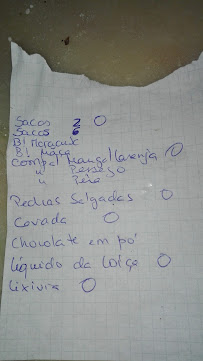 Sacos 2 O
Sacos 6
B! Maracujá
B! Maçã
Compal Manga/Laranja O
" Pessego
" Pêra
Pedras Salgadas O
Cevada O
Chocolate em pó
Líquido da Loiça O
Lixivia O